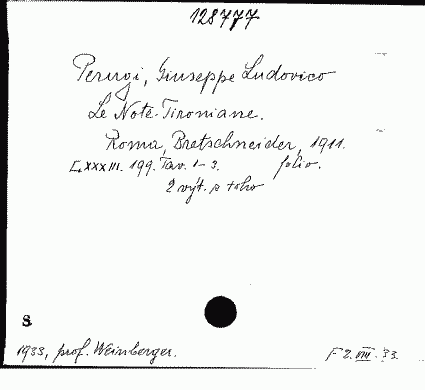 128777
Perugi, Giuseppe Ludovico
Le Note Tironiane.
Roma, Bretschneider, 1911.
LXXXIII. 199. Tav. 1-3. folio.
2 výt. z toho
8
1933, prof. Weinberger.
F 2. VIII. 33.